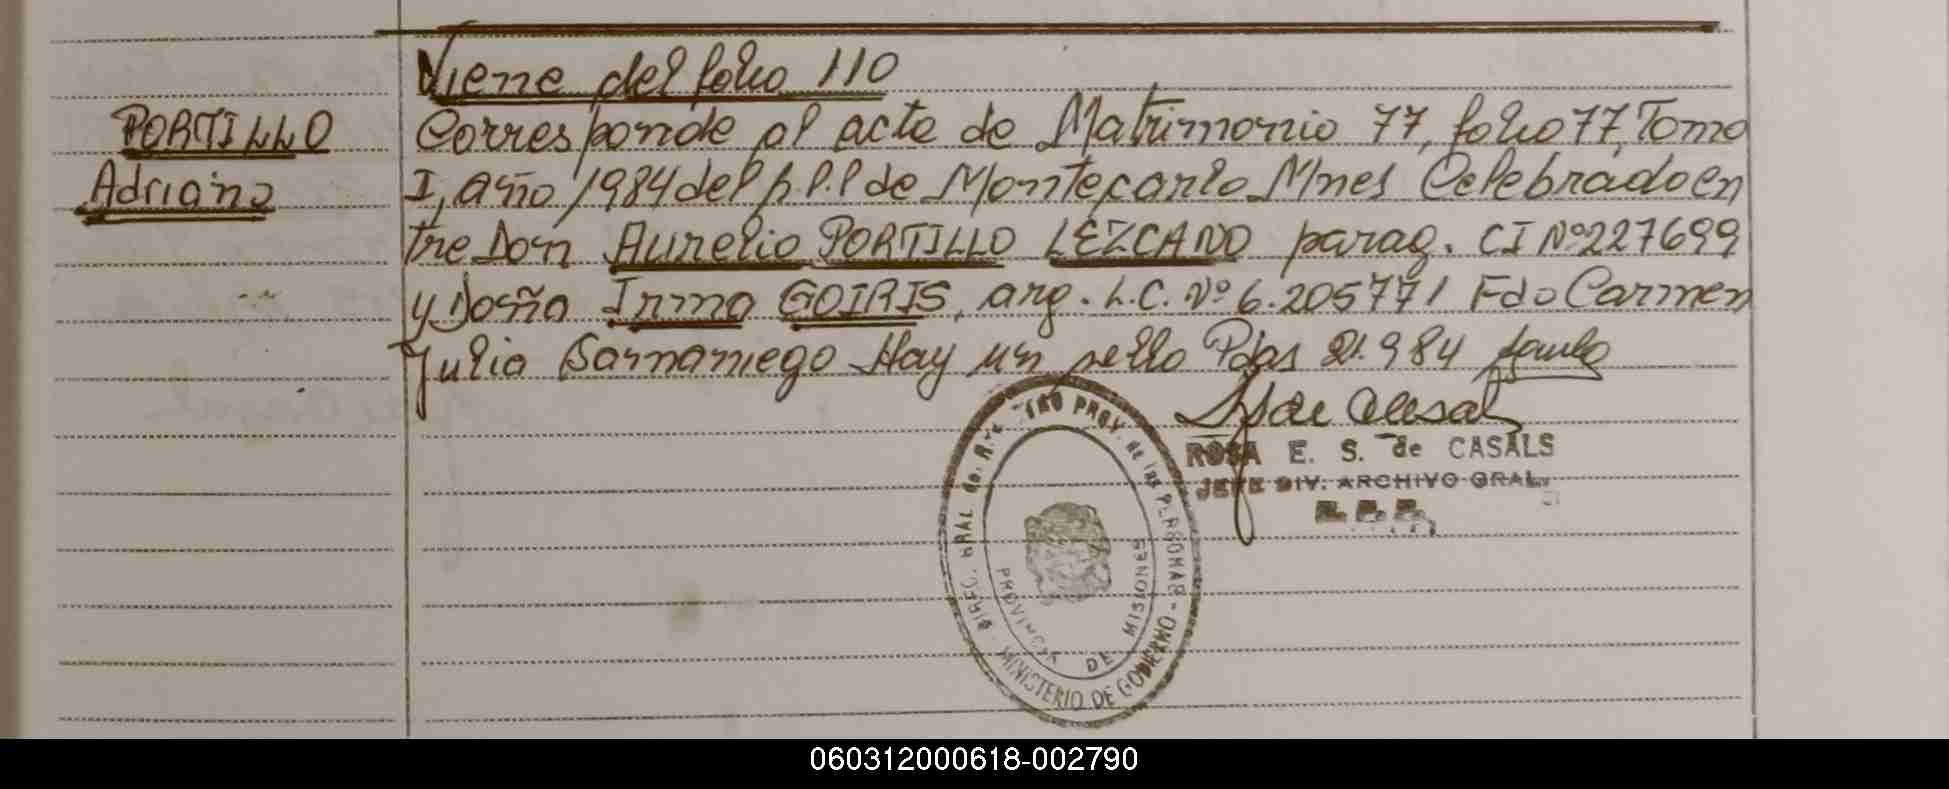 Viene del folio 110
PORTILLO
Adriano
Corresponde al acta de Matrimonio 77, folio 77, Tomo
I, año 1984 del p.l.l de Montecarlo Mnes Celebrado en
tre Don Aurelio PORTILLO LEZCANO parag. CI Nº 227699
y Doña Irma GOIRIS, arg. L.C. Nº 6.205771 Fdo Carmen
Julia Samaniego Hay un sello Pdas 21.984
ROSA E. S. de CASALS
JEFE DIV. ARCHIVO GRAL.
R.P.P.
DIREC. GRAL de. PROV. de las PERSONAS - MINISTERIO DE GOBIERNO
PROVINCIA DE MISIONES
060312000618-002790